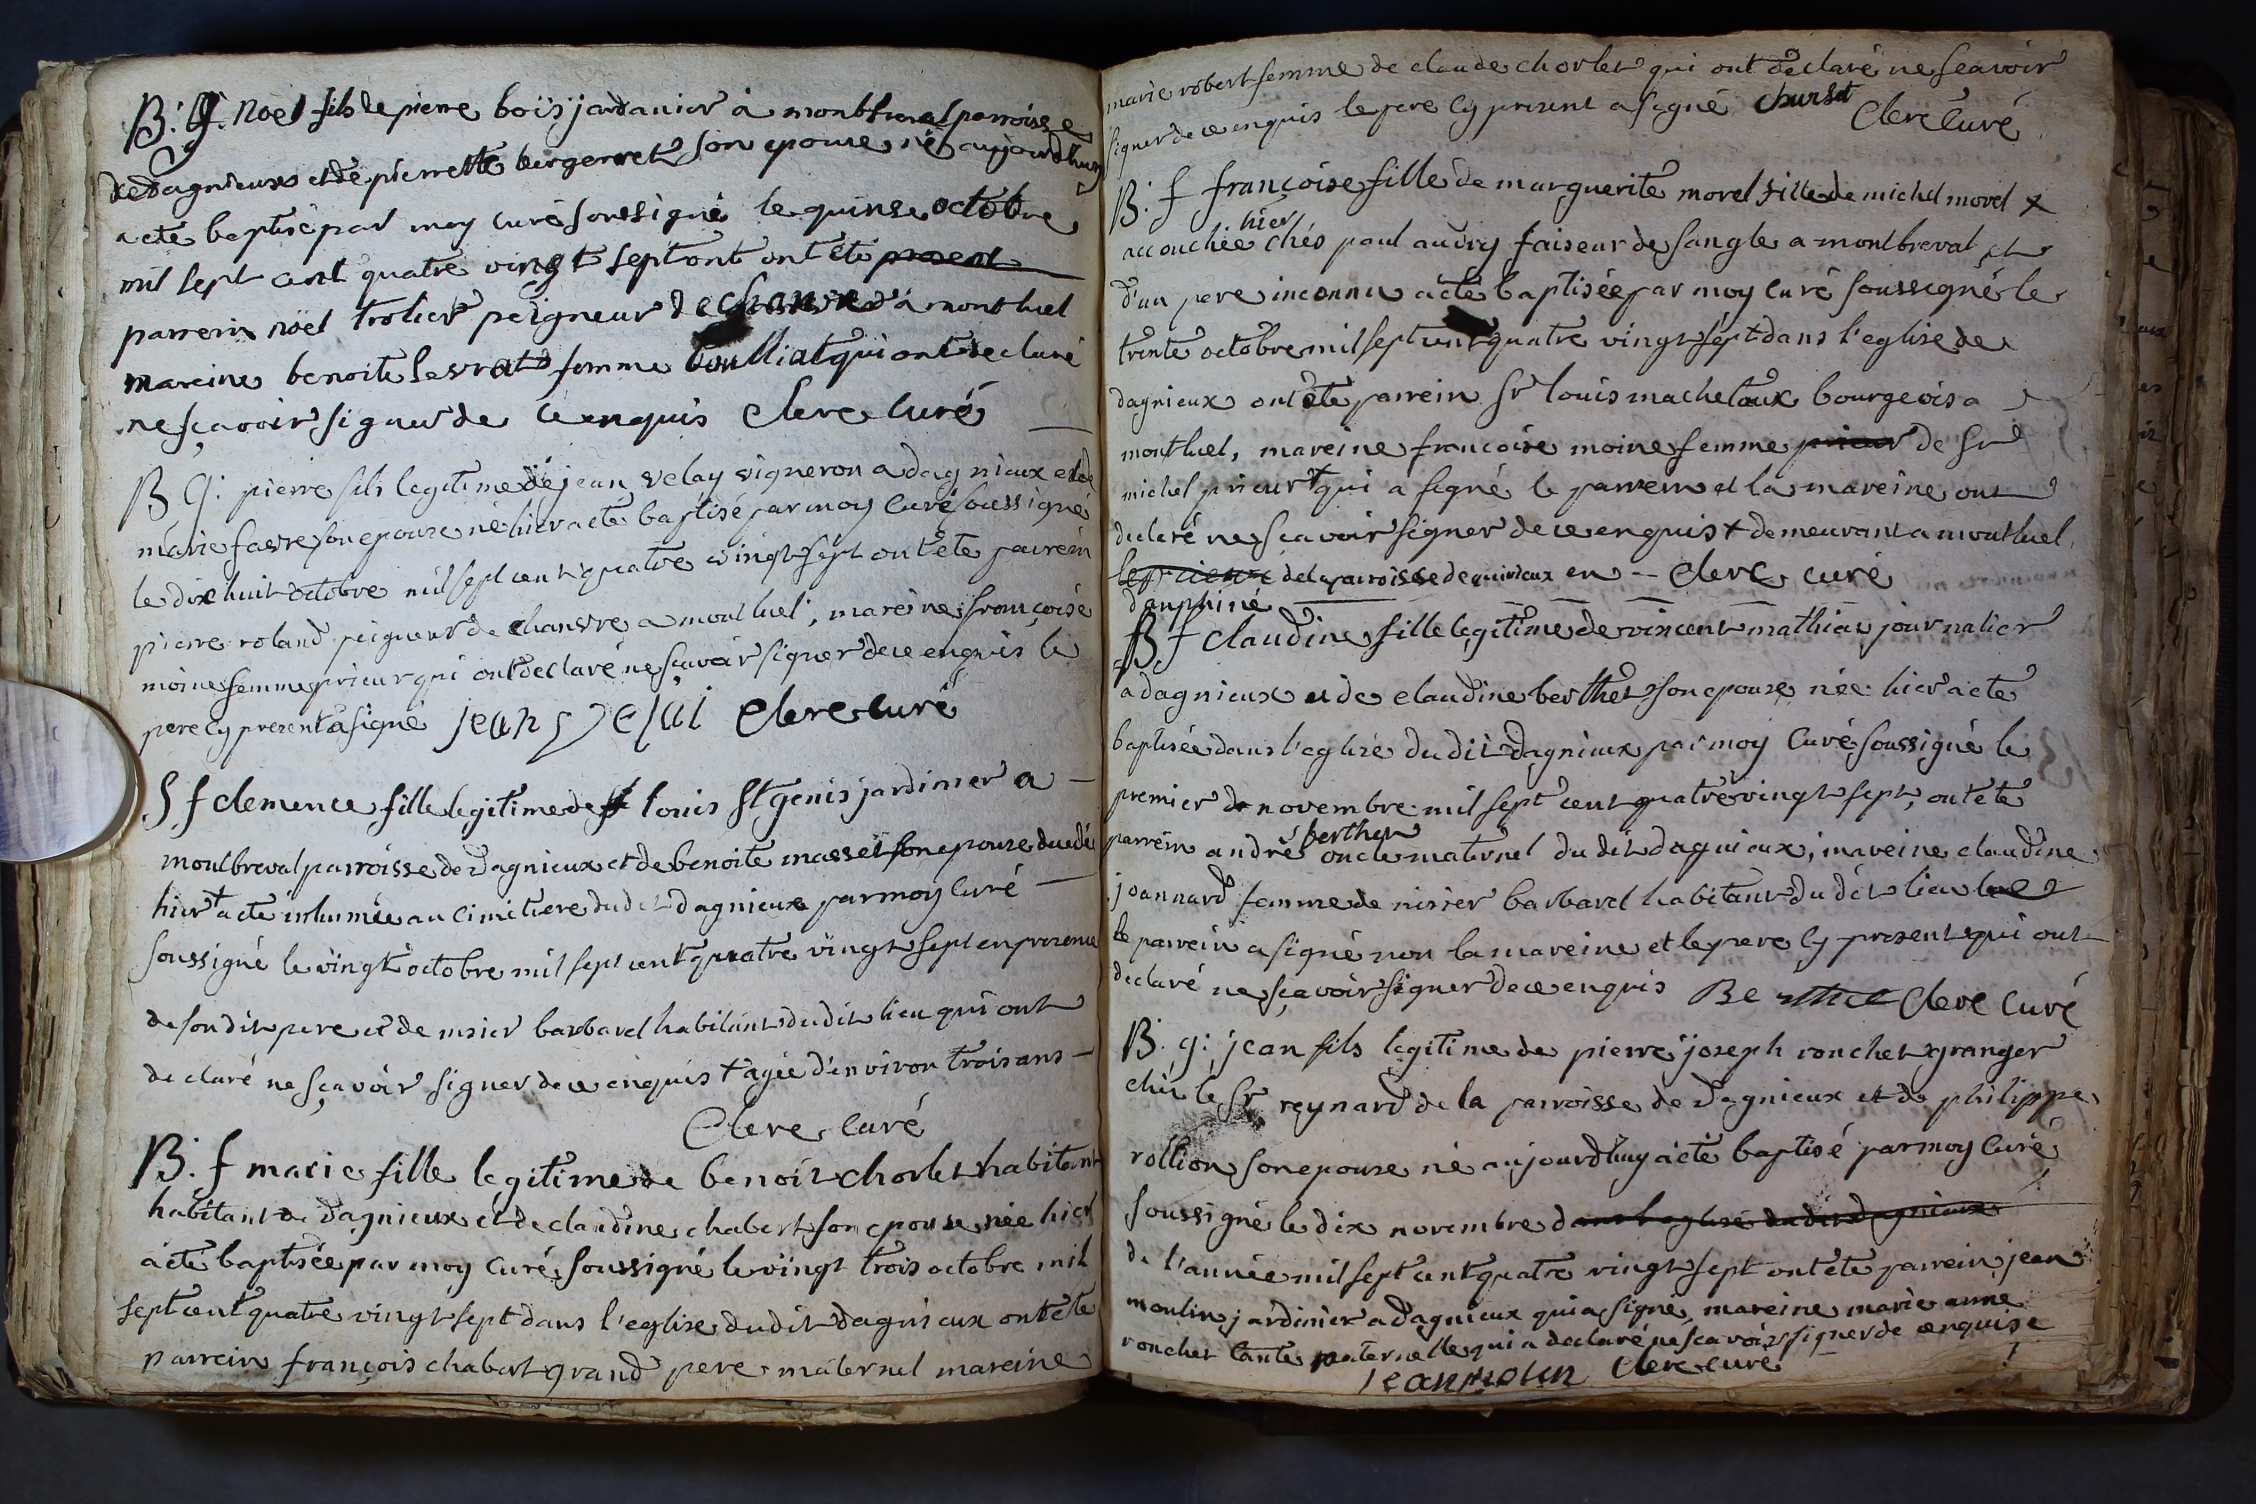 B. g. Noel fils de pierre bois jardanier à montbreval parroisse
de dagnieux et de pierrette bergerret son epouse né aujourdhuy
a eté baptisé par moy curé soussigné le quinse octobre
mil sept cent quatre vingt sept ont ont été present
parrein nöel trolier peigneur de chanvre à montluel
mareine benoite levrat femme boulliat qui ont declaré
ne sçavoir signer de ce enquis Clerc curé
B g. pierre fils legitime de jean velay vigneron a dagnieux et de
marie favre son epouse né hier a eté baptisé par moy curé soussigné
le dix huit octobre mil sept cent quatre vingt sept ont été parrein
pierre roland peigneur de chanvre a montluel, mareine françoise
moine femme prieur qui ont declaré ne sçavoir signer de ce enquis le
pere cy present a signé jean velai Clerc curé
S f clemence fille legitime de louis St genis jardinier a
montbreval parroisse de dagnieux et de benoite masset son epouse decedé
hier + a eté inhumée au cimetiere dudit dagnieux par moy curé
soussigné le vingt octobre mil sept cent quatre vingt sept en presence
de son dit pere et de nisier barbaret habitant dudit lieu qui ont
declaré ne sçavoir signer de ce enquis + agée d'environ trois ans
Clerc curé
B. f marie fille legitime de benoit chorlet habitant
habitant de dagnieux et de claudine chabert son epouse née hier
a eté baptisée par moy curé soussigné le vingt trois octobre mil
sept cent quatre vingt sept dans l'eglise dudit dagnieux ont eté
parrein françois chabert grand pere maternel mareine
marie robert femme de claude chorlet qui ont declaré ne scavoir
signer de ce enquis le pere cy present a signé Clerc curé
B. f françoise fille de marguerite morel fille de michel morel x
hier
accouchée chés paul audry faiseur de sangle a montbreval et
d'un pere inconnu a eté baptisée par moy curé soussigné le
trente octobre mil sept cent quatre vingt sept dans l'eglise de
dagnieux ont été parrein Sr louis machetaux bourgeois a
montluel, mareine francoise moine femme prieur de Sr
michel prieur + qui a signé le parrein et la mareine ont
declaré ne sçavoir signer de ce enquis + demeurant a montluel
de la parroisse de quirieux en Clerc curé
dauphiné
B f claudine fille legitime de vincent mathian journalier
a dagnieux et de claudine berthet son epouse née hier a eté
baptisée dans l'eglise dudit dagnieux par moy curé soussigné le
premier de novembre mil sept cent quatre vingt sept, ont eté
berthet
parrein andré oncle maternel dudit dagnieux, mareine claudine
joannard femme de nisier barbaret habitant dudit lieu
le parrein a signé non la mareine et le pere cy present qui ont
declaré ne sçavoir signer de ce enquis Berthet Clerc curé
B. g. jean fils legitime de pierre joseph ronchet granger
chés le Sr reynard de la parroisse de dagnieux et de philippe
rollion son epouse né aujourdhuy a eté baptisé par moy curé
soussigné le dix novembre dans l'eglise dudit dagnieux
de l'année mil sept cent quatre vingt sept ont eté parrein jean
moulin jardinier a dagnieux qui a signé, mareine marie anne
ronchet tante paternelle qui a declaré ne scavoir signer de enquise
Jean molin Clerc curé